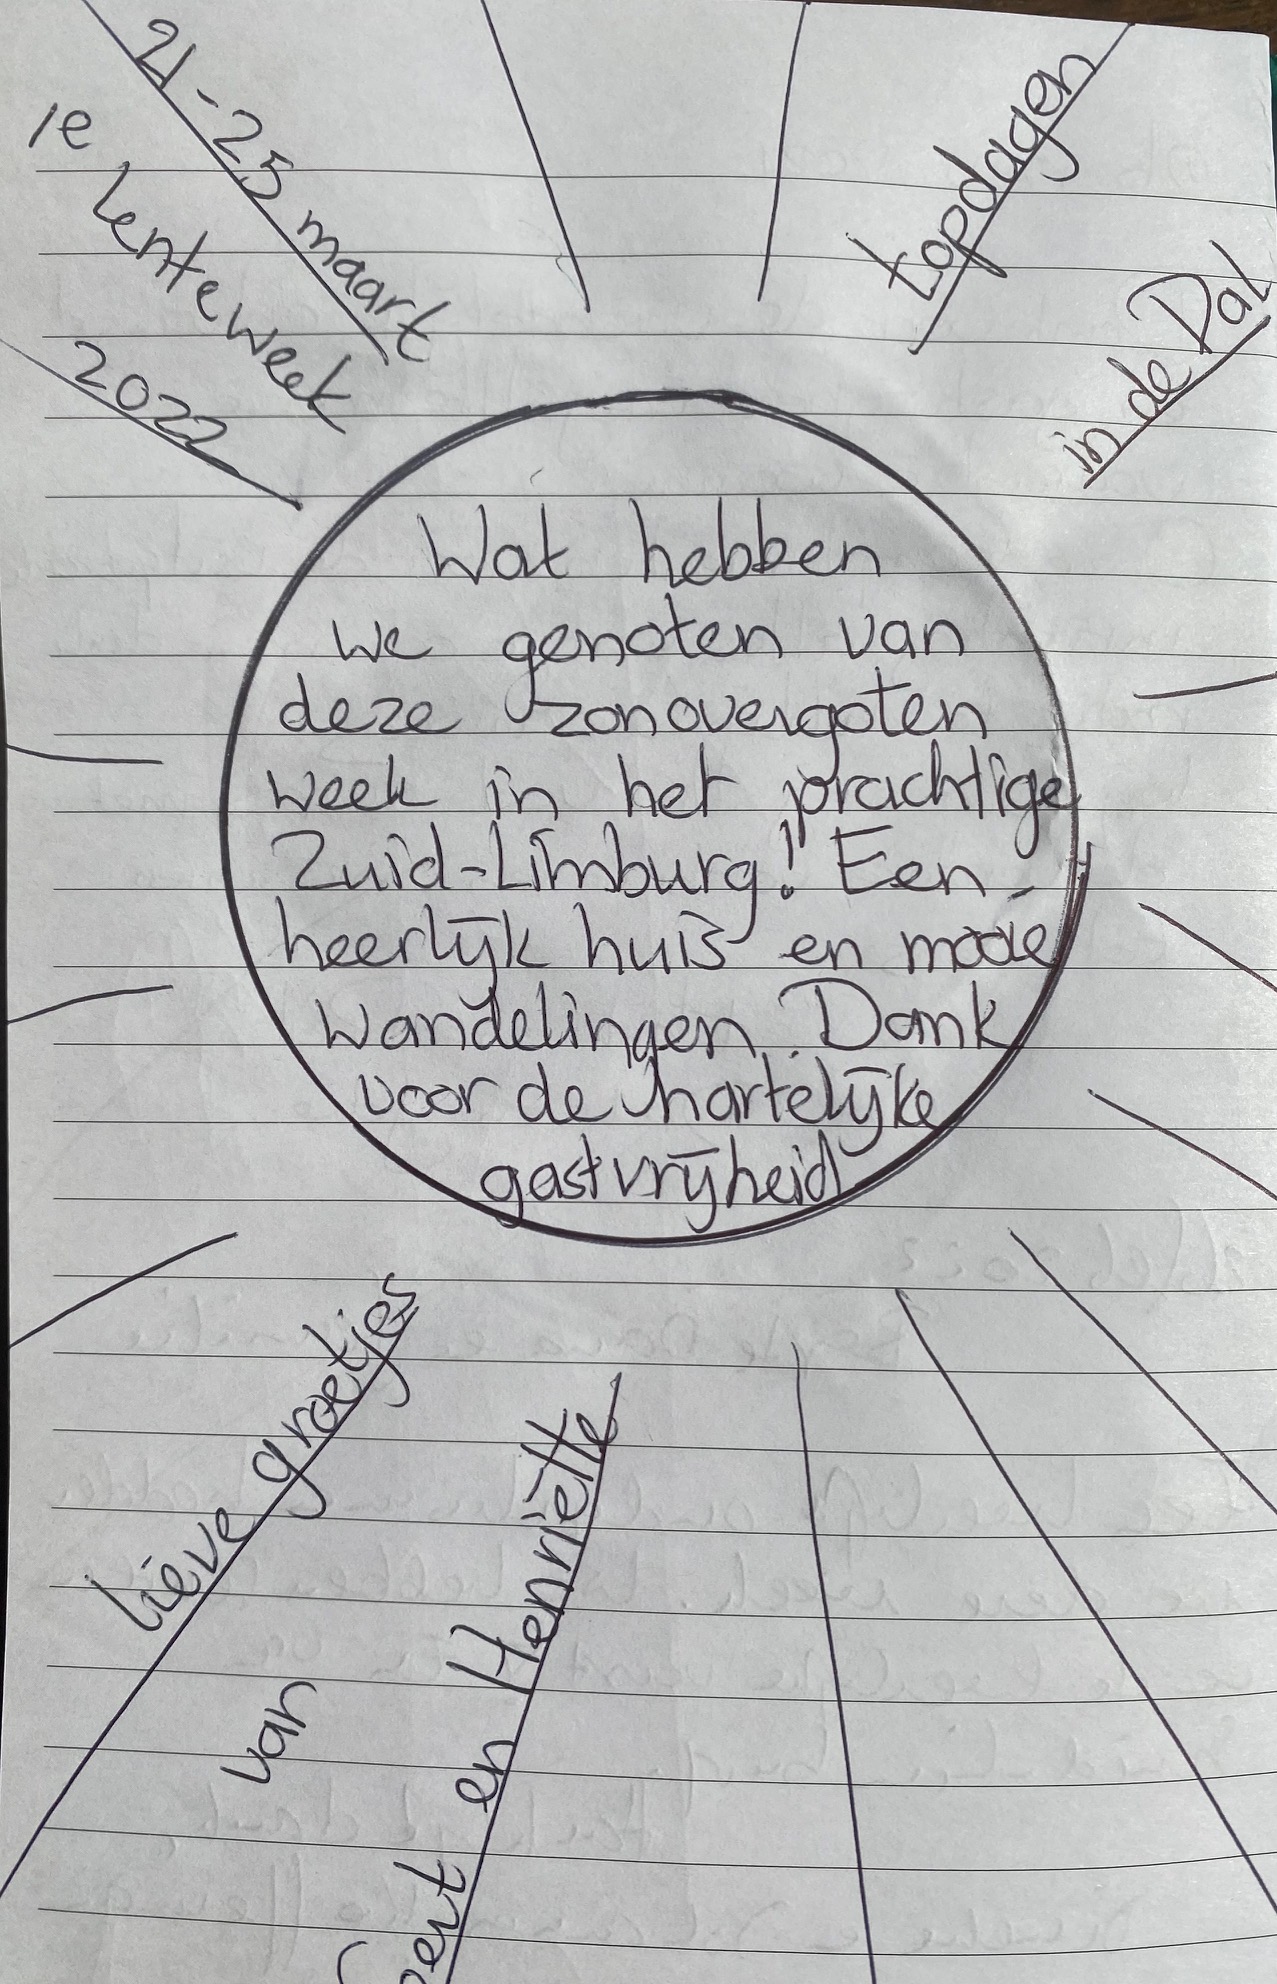 21-25 maart
1e lenteweek
2022
topdagen
in de Dal
Wat hebben
we genoten van
deze zonovergoten
week in het prachtige
Zuid-Limburg! Een
heerlijk huis en mooie
wandelingen. Dank
voor de hartelijke
gastvrijheid
Lieve groetjes
van
en Henriëtte